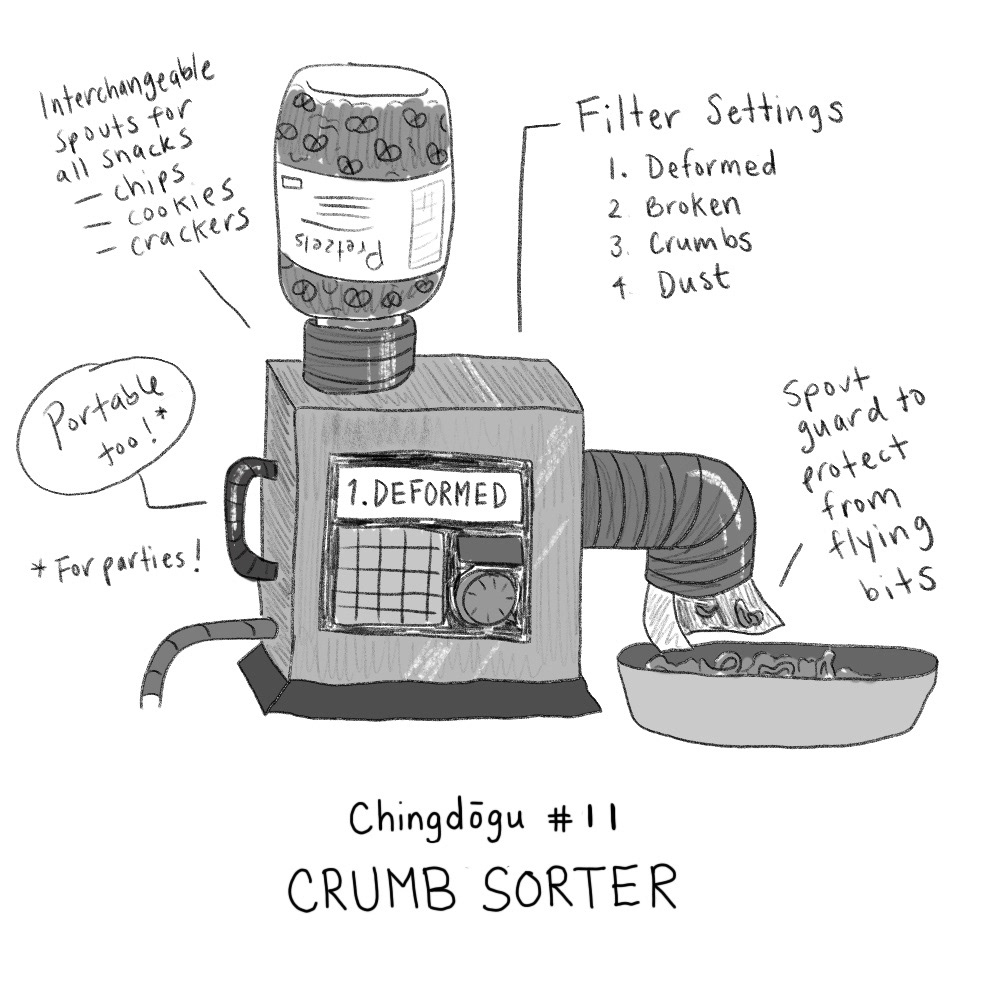 Interchangeable
spouts for
all snacks
- chips
- cookies
- crackers
Pretzels
Filter Settings
1. Deformed
2 Broken
3. Crumbs
4. Dust
Portable
too!*
*For parties!
1. DEFORMED
Spout
guard to
protect
from
flying
bits
Chingdōgu #11
CRUMB SORTER